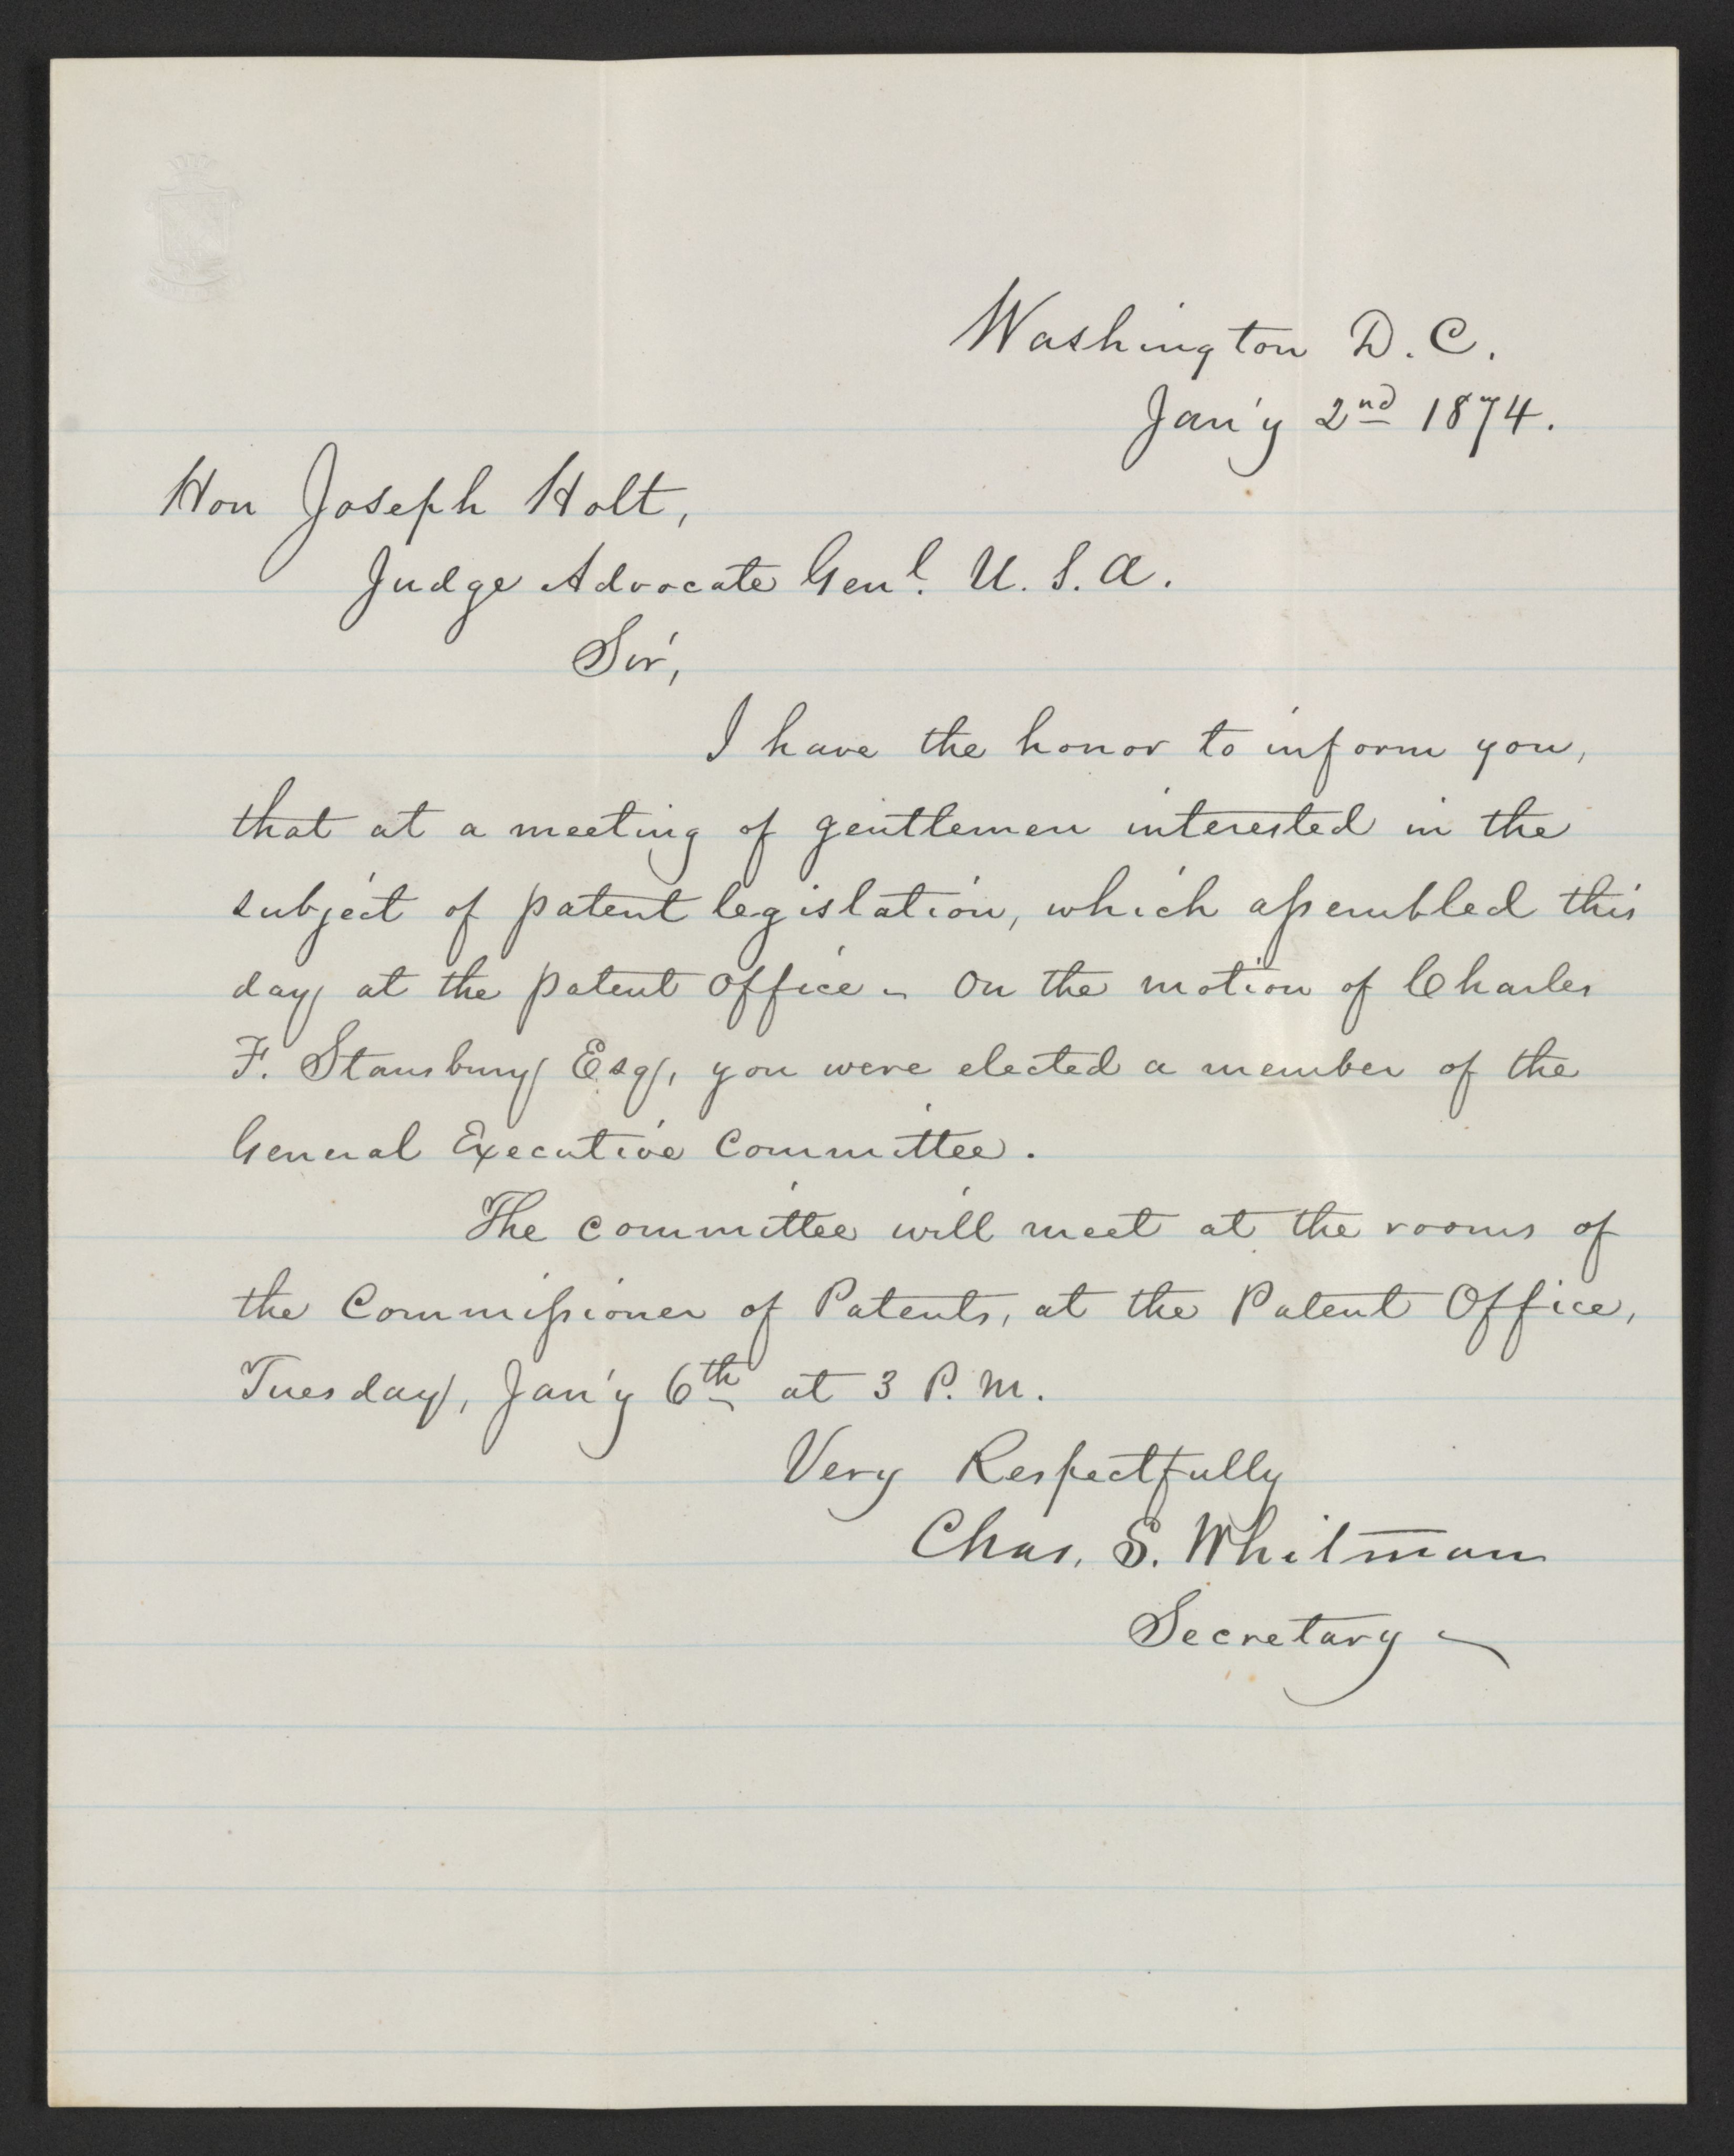 Washington D. C.
Jan'y 2nd 1874.
Hon Joseph Holt,
Judge Advocate Genl. U. S. A.
Sir,
I have the honor to inform you,
that at a meeting of gentlemen interested in the
subject of patent legislation, which assembled this
day at the patent office - On the motion of Charles
F. Stansbury Esq, you were elected a member of the
General Executive Committee.
The committee will meet at the rooms of
the Commissioner of Patents, at the Patent Office,
Tuesday, Jan'y 6th at 3 P. M.
Very Respectfully
Chas. S. Whitman
Secretary